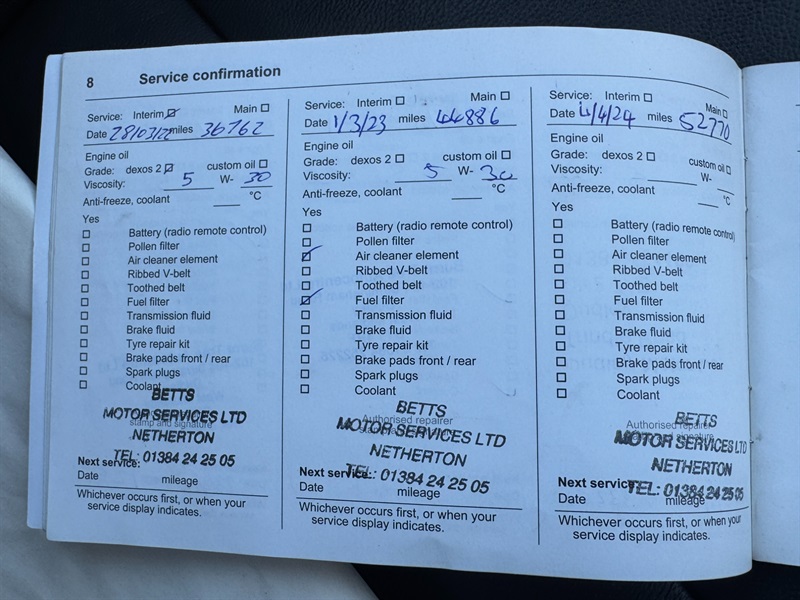 8 Service confirmation
Service: Interim Main
Date 28/03/22 miles 36762
Engine oil
Grade: dexos 2 custom oil
Viscosity: 5 W- 30
Anti-freeze, coolant °C
Yes
Battery (radio remote control)
Pollen filter
Air cleaner element
Ribbed V-belt
Toothed belt
Fuel filter
Transmission fluid
Brake fluid
Tyre repair kit
Brake pads front / rear
Spark plugs
Coolant
BETTS
MOTOR SERVICES LTD
stamp and signature
NETHERTON
TEL: 01384 24 25 05
Next service:
Date mileage
Whichever occurs first, or when your
service display indicates.
Service: Interim Main
Date 1/3/23 miles 44886
Engine oil
Grade: dexos 2 custom oil
Viscosity: 5 W- 30
Anti-freeze, coolant °C
Yes
Battery (radio remote control)
Pollen filter
Air cleaner element
Ribbed V-belt
Toothed belt
Fuel filter
Transmission fluid
Brake fluid
Tyre repair kit
Brake pads front / rear
Spark plugs
Coolant
BETTS
Authorised repairer
MOTOR SERVICES LTD
NETHERTON
TEL: 01384 24 25 05
Next service:
Date mileage
Whichever occurs first, or when your
service display indicates.
Service: Interim Main
Date 4/4/24 miles 52770
Engine oil
Grade: dexos 2 custom oil
Viscosity: W-
Anti-freeze, coolant °C
Yes
Battery (radio remote control)
Pollen filter
Air cleaner element
Ribbed V-belt
Toothed belt
Fuel filter
Transmission fluid
Brake fluid
Tyre repair kit
Brake pads front / rear
Spark plugs
Coolant
BETTS
Authorised repairer
MOTOR SERVICES LTD
NETHERTON
TEL: 01384 24 25 05
Next service:
Date mileage
Whichever occurs first, or when your
service display indicates.